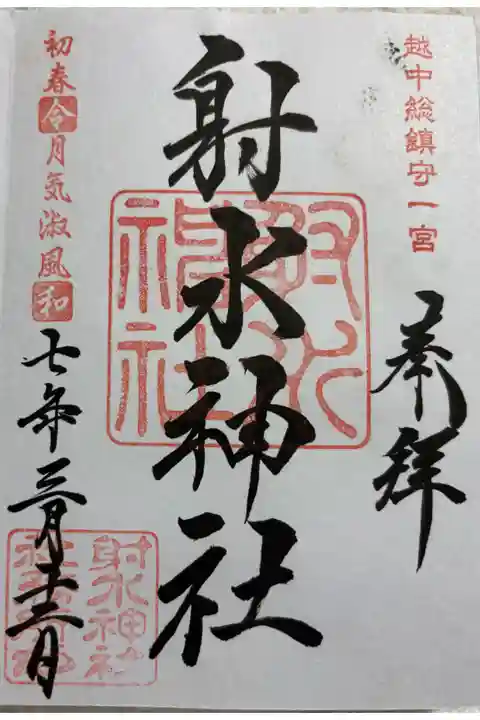 越中総鎮守一宮
奉拝
射水神社
射水
神社
初春令月気淑風和
七年三月
射水神社